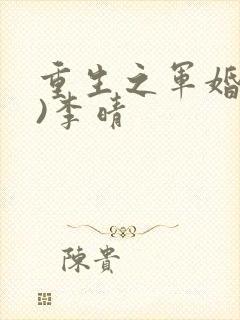 重生之军婚
)李晴
陳貴